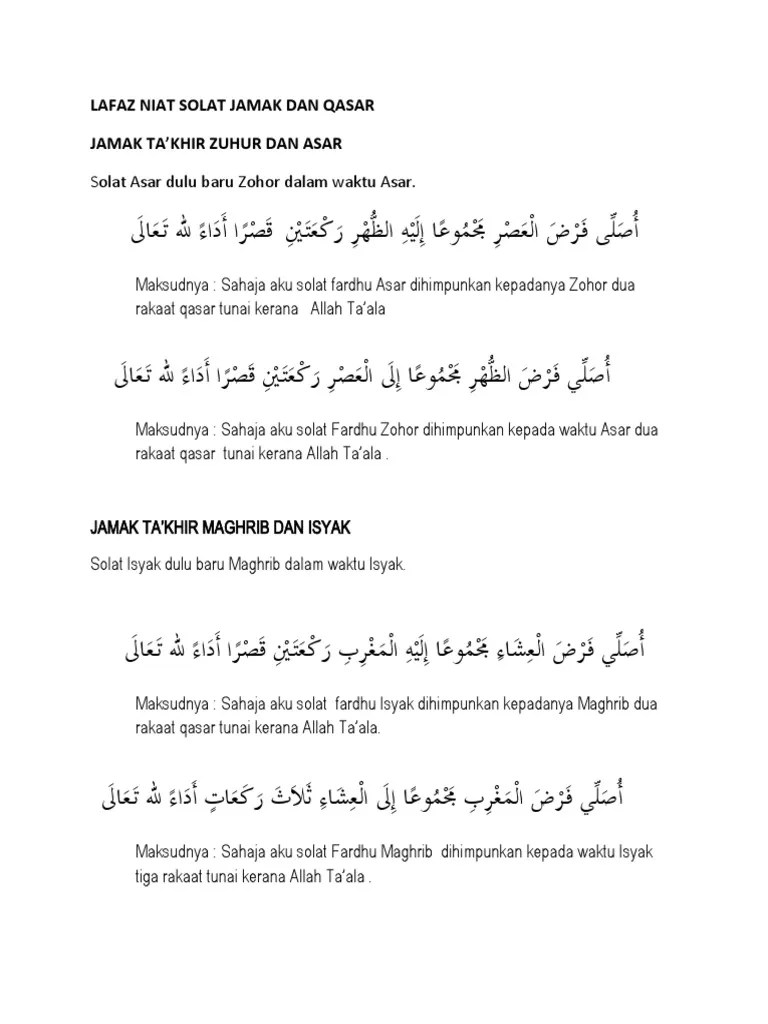 LAFAZ NIAT SOLAT JAMAK DAN QASAR
JAMAK TA’KHIR ZUHUR DAN ASAR
Solat Asar dulu baru Zohor dalam waktu Asar.
أُصَلِّى فَرْضَ الْعَصْرِ مَجْمُوعًا إِلَيْهِ الظُّهْرِ رَكْعَتَيْنِ قَصْرًا أَدَاءً لله تَعَالَى
Maksudnya : Sahaja aku solat fardhu Asar dihimpunkan kepadanya Zohor dua
rakaat qasar tunai kerana Allah Ta’ala
أُصَلِّي فَرْضَ الظُّهْرِ مَجْمُوعًا إِلَى الْعَصْرِ رَكْعَتَيْنِ قَصْرًا أَدَاءً لله تَعَالَى
Maksudnya : Sahaja aku solat Fardhu Zohor dihimpunkan kepada waktu Asar dua
rakaat qasar tunai kerana Allah Ta’ala .
JAMAK TA’KHIR MAGHRIB DAN ISYAK
Solat Isyak dulu baru Maghrib dalam waktu Isyak.
أُصَلِّي فَرْضَ الْعِشَاءِ مَجْمُوعًا إِلَيْهِ الْمَغْرِبِ رَكْعَتَيْنِ قَصْرًا أَدَاءً لله تَعَالَى
Maksudnya : Sahaja aku solat fardhu Isyak dihimpunkan kepadanya Maghrib dua
rakaat qasar tunai kerana Allah Ta’ala.
أُصَلِّي فَرْضَ الْمَغْرِبِ مَجْمُوعًا إِلَى الْعِشَاءِ ثَلَاثَ رَكَعَاتٍ أَدَاءً لله تَعَالَى
Maksudnya : Sahaja aku solat Fardhu Maghrib dihimpunkan kepada waktu Isyak
tiga rakaat tunai kerana Allah Ta’ala .